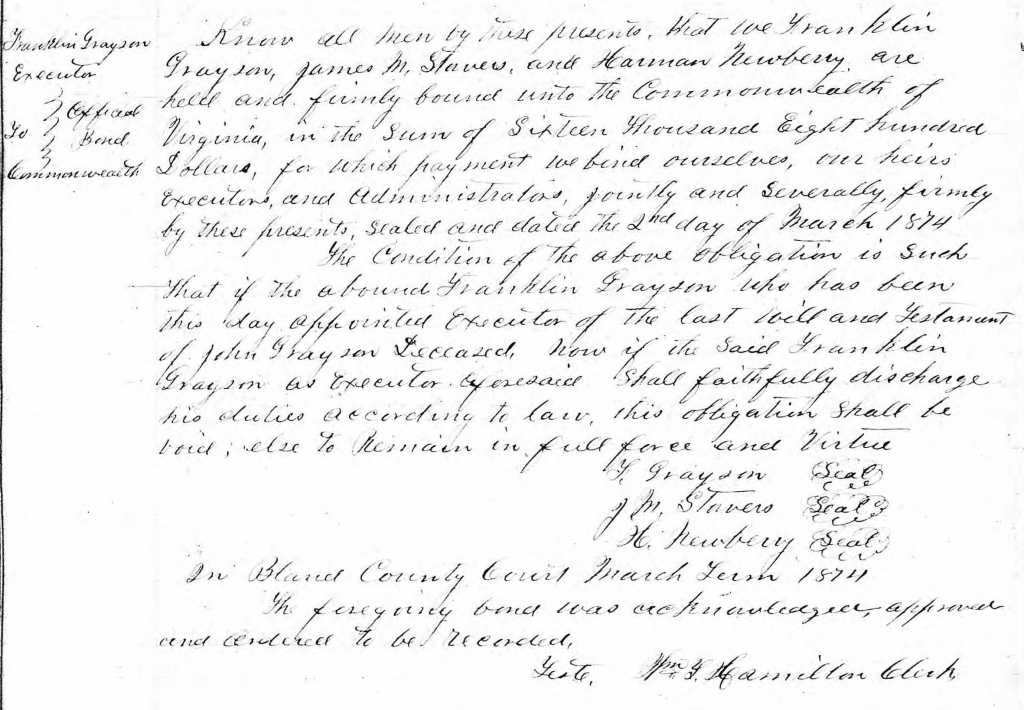 Franklin Grayson
Executor
} Official
To } Bond
}
Commonwealth
Know all men by these presents, that we Franklin
Grayson, James M. Stowers, and Harman Newberry are
held and firmly bound unto the Commonwealth of
Virginia, in the Sum of Sixteen Thousand Eight hundred
Dollars, for which payment we bind ourselves, our heirs
Executors, and Administrators, jointly and Severally, firmly
by these presents, Sealed and dated the 2nd day of March 1874
The Condition of the above obligation is Such
That if the abound Franklin Grayson who has been
this day appointed Executor of the last will and Testament
of John Grayson Deceased, Now if the Said Franklin
Grayson as Executor Aforesaid Shall faithfully discharge
his duties according to law, this obligation Shall be
void; else to Remain in full force and Virtue
F. Grayson (Seal)
J M. Stowers (Seal)
H. Newberry (Seal)
In Bland County Court March Term 1874
The foregoing bond was acknowledged, approved
and ordered to be recorded,
Teste, Wm F. Hamilton Clerk